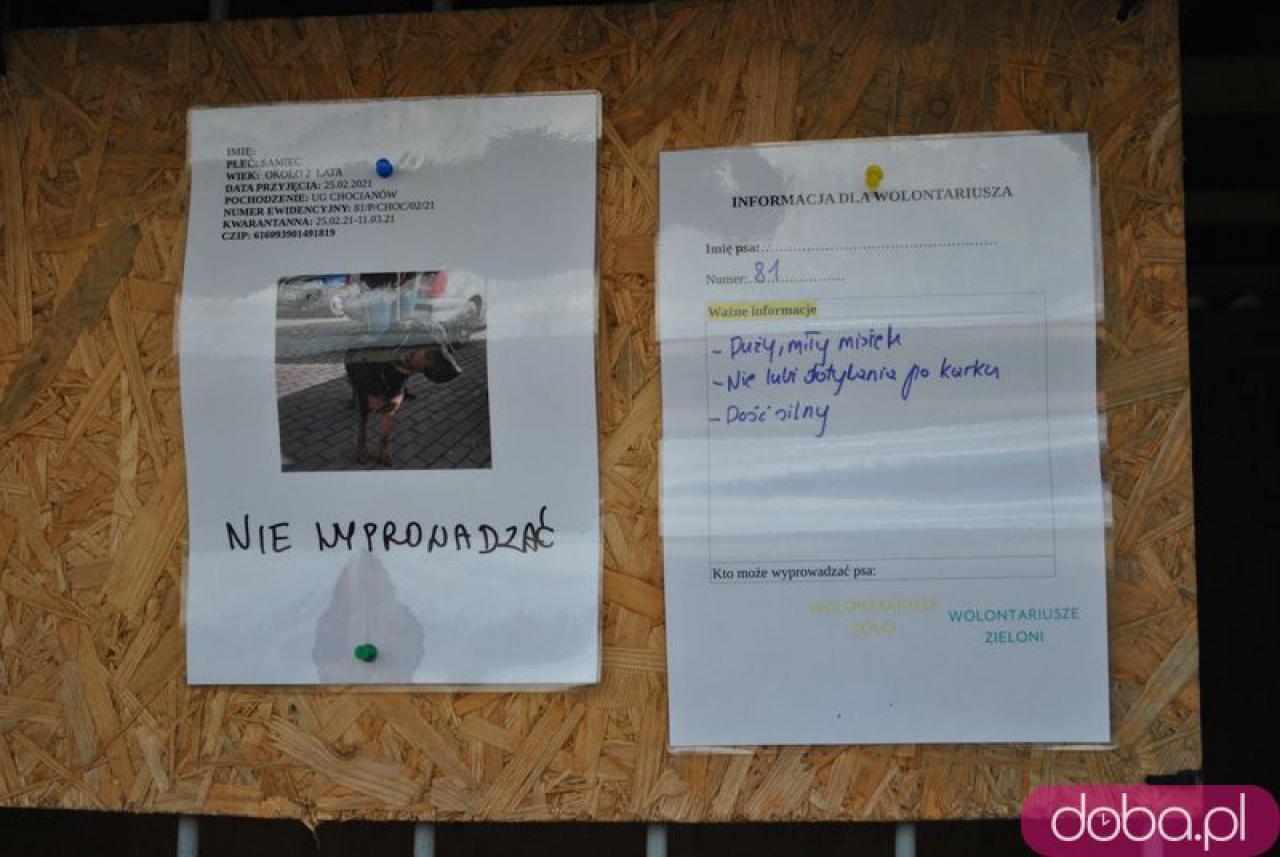 IMIĘ:
PŁEĆ: SAMIEC
WIEK: OKOŁO 2 LATA
DATA PRZYJĘCIA: 25.02.2021
POCHODZENIE: UG CHOCIANÓW
NUMER EWIDENCYJNY: 81/P/CHOC/02/21
KWARANTANNA: 25.02.21-11.03.21
CZIP: 616093901491819
NIE WYPROWADZAĆ
INFORMACJA DLA WOLONTARIUSZA
Imię psa:
Numer: 81
Ważne informacje
- Duży, miły misiek
- Nie lubi dotykania po karku
- Dość silny
Kto może wyprowadzać psa:
WOLONTARIUSZE
ŻÓŁCI
WOLONTARIUSZE
ZIELONI
doba.pl